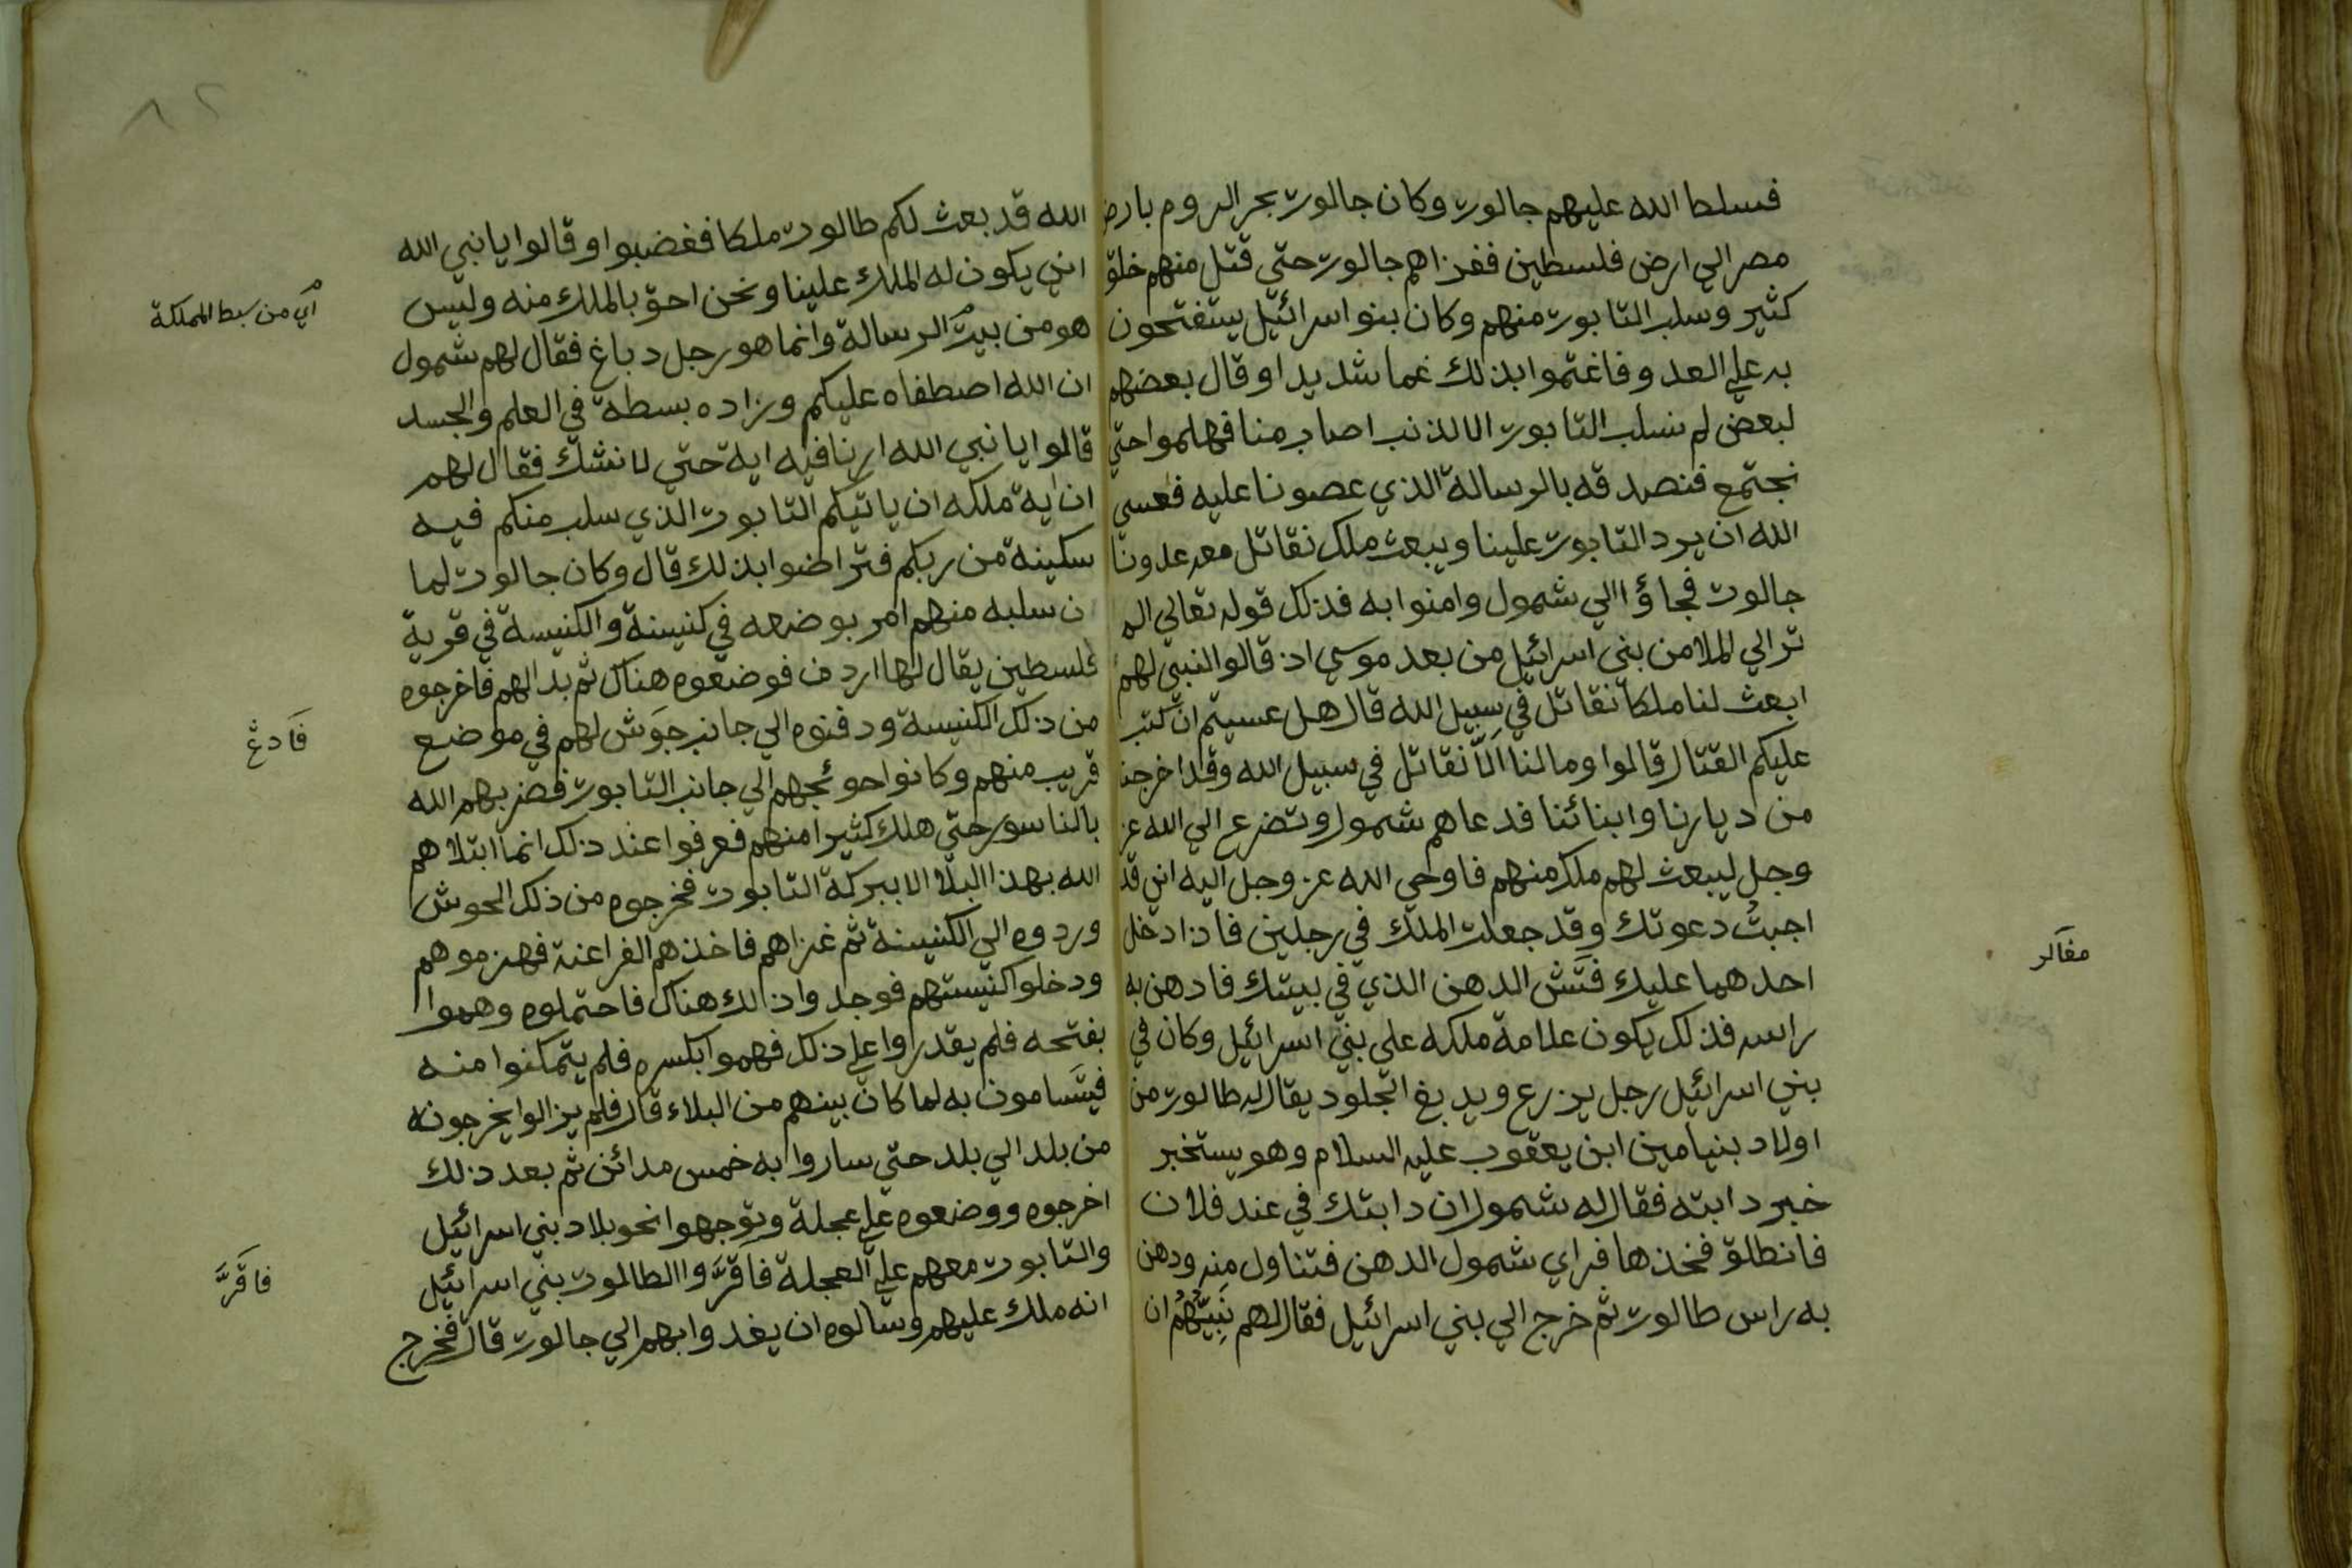 فسلط الله عليهم جالوت وكان جالوت بحر الروم بارض
مصر الي ارض فلسطين ففزاهم جالوت حتي قتل منهم خلق
كثير وسلب التابوت منهم وكان بنو اسرائيل يستفتحون
به علي العدو فاغتموا بذلك غما شديدا وقال بعضهم
لبعض لم نسلب التابوت الا لذنب اصاب منا فهلموا حتي
نجتمع فنصدقه بالرسالة الذي عصونا عليه فعسي
الله ان يرد التابوت علينا ويبعث ملك نقاتل معه عدونا
جالوت فجاؤا الي شمول وامنوا به فذلك قوله تعالي الم
تر الي الملا من بني اسرائيل من بعد موسي اذ قالوا لنبي لهم
ابعث لنا ملكا نقاتل في سبيل الله قال هل عسيتم ان كتب
عليكم القتال قالوا وما لنا الَّا نقاتل في سبيل الله وقد اخرجنا
من ديارنا وابنائنا فدعاهم شمول وتضرع الي الله عز
وجل ليبعث لهم ملك منهم فاوحي الله عز وجل اليه اني قد
اجبتُ دعوتك وقد جعلت الملك في رجلين فاذا دخل
احدهما عليك فَتَش الدهن الذي في بيتك فادهن به
راسه فذلك يكون علامة ملكه علي بني اسرائيل وكان في
بني اسرائيل رجل يزرع ويدبغ الجلود يقال له طالوت من
اولاد بنيامين ابن يعقوب عليه السلام وهو يستخبر
خبر دابته فقال له شمول ان دابتك في عند فلان
فانطلق فخذها فراي شمول الدهن فتناول منه ودهن
به راس طالوت ثم خرج الي بني اسرائيل فقال لهم نَبِيّهُمُ ان
الله قد بعث لكم طالوت ملكا فغضبوا وقالوا يا نبي الله
اني يكون له الملك علينا ونحن احق بالملك منه وليس
هو من بيت الرسالة وانما هو رجل دباغ فقال لهم شمول
ان الله اصطفاه عليكم وزاده بسطة في العلم والجسد
قالوا يا نبي الله ارنا فيه اية حتي لا نشك فقال لهم
ان اية ملكه ان ياتيكم التابوت الذي سلب منكم فيه
سكينة من ربكم فتراضوا بذلك قال وكان جالوت لما
ن سلبه منهم امر بوضعه في كنيسة والكنيسة في قرية
فلسطين يقال لها اردن فوضعوه هناك ثم بدا لهم فاخرجوه
من ذلك الكنيسة ودفنوه الي جانب جَوش لهم في موضع
قريب منهم وكانوا حوئجهم الي جانب التابوت فضربهم الله
بالناسور حتي هلك كثيرا منهم فعرفوا عند ذلك انما ابتلاهم
الله بهذا البلا الا ببركة التابوت فخرجوه من ذلك الحوش
وردوه الي الكنيسة ثم غزاهم فاخذهم الفراعنة فهزموهم
ودخلوا كنيستهم فوجدوا ذلك هناك فاحتملوه وهموا
بفتحه فلم يقدروا علي ذلك فهموا بكسره فلم يتمكنوا منه
فيتَسامون به لما كان بينهم من البلاء قال فلم يزالوا يخرجونه
من بلد الي بلد حتي ساروا به خمس مدائن ثم بعد ذلك
اخرجوه ووضعوه علي عجلة وتوجهوا نحو بلاد بني اسرائيل
والتابوت معهم علي العجلة فاقرَّوا لطالوت بني اسرائيل
انه ملك عليهم وسالوه ان يغدوا بهم الي جالوت قال فخرج
اي من سبط المملكة
فاقَرَّ